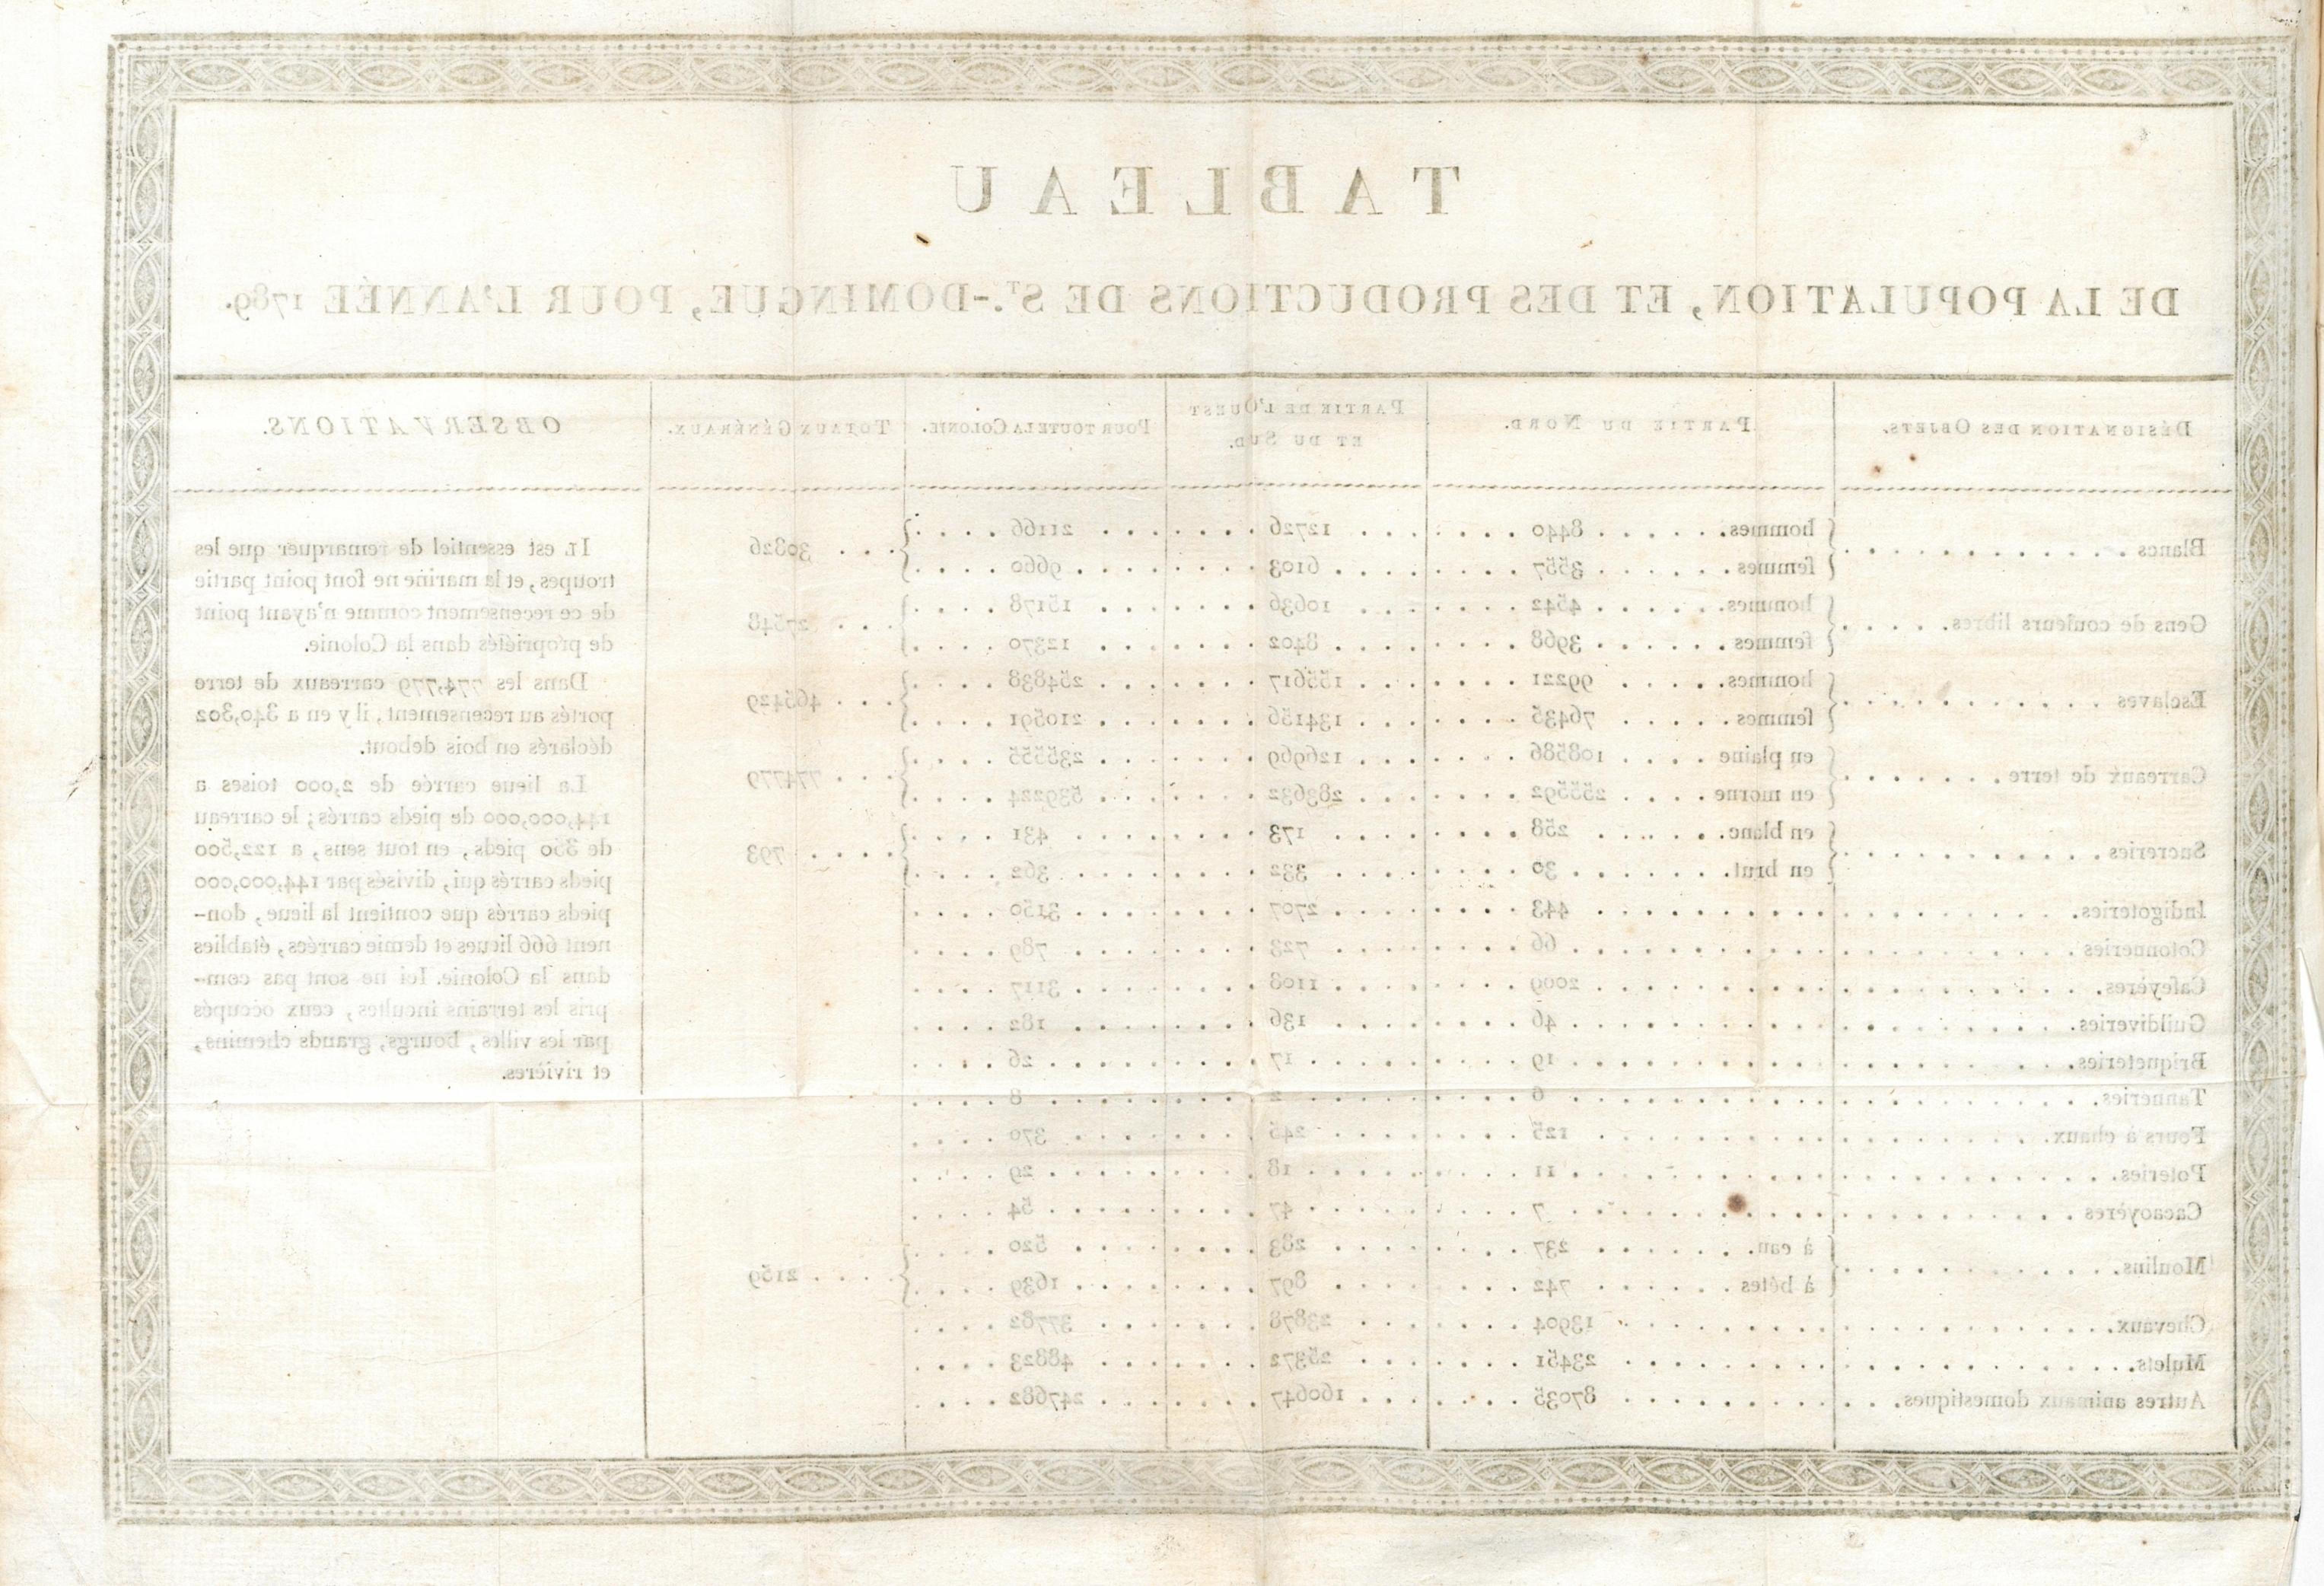 TABLEAU
DE LA POPULATION, ET DES PRODUCTIONS DE ST.-DOMINGUE, POUR L'ANNÉE 1789.
DÉSIGNATION DES OBJETS. PARTIE DU NORD. PARTIE DE L'OUEST ET DU SUD. POUR TOUTE LA COLONIE. TOTAUX GÉNÉRAUX. OBSERVATIONS.
Blancs . . . hommes. . . . 8440 . . . 12726 . . . 21166 . . . 30826
femmes. . . . 3557 . . . 6103 . . . 9660
Gens de couleurs libres. . . . hommes. . . . 4542 . . . 10636 . . . 15178 . . . 27548
femmes . . . 3968 . . . 8402 . . . 12370
Esclaves . . . hommes. . . . 99221 . . . 155617 . . . 254838 . . . 465429
femmes . . . 76435 . . . 134156 . . . 210591
Carreaux de terre . . . en plaine . . . 108586 . . . 126969 . . . 235555 . . . 774779
en morne . . . 255592 . . . 283632 . . . 539224
Sucreries . . . en blanc. . . . 258 . . . 173 . . . 431 . . . 793
en brut. . . . 30 . . . 332 . . . 362
Indigoteries. . . . 443 . . . 2707 . . . 3150
Cotonneries . . . 66 . . . 723 . . . 789
Cafeyères. . . . 2009 . . . 1108 . . . 3117
Guildiveries. . . . 46 . . . 136 . . . 182
Briqueteries. . . . 19 . . . 17 . . . 26
Tanneries. . . . 6 . . . 2 . . . 8
Fours à chaux. . . . 125 . . . 245 . . . 370
Poteries. . . . 11 . . . 18 . . . 29
Cacaoyères . . . 7 . . . 47 . . . 54
Moulins. . . . à eau. . . . 237 . . . 283 . . . 520 . . . 2159
à bêtes . . . 742 . . . 897 . . . 1639
Chevaux. . . . 13904 . . . 23878 . . . 37782
Mulets. . . . 23451 . . . 25372 . . . 48823
Autres animaux domestiques. . . . 87035 . . . 160647 . . . 247682
IL est essentiel de remarquer que les
troupes, et la marine ne font point partie
de ce recensement comme n'ayant point
de propriétés dans la Colonie.
Dans les 774,779 carreaux de terre
portés au recensement, il y en a 340,302
déclarés en bois debout.
La lieue carrée de 2,000 toises a
144,000,000 de pieds carrés; le carreau
de 350 pieds, en tout sens, a 122,500
pieds carrés qui, divisés par 144,000,000
pieds carrés que contient la lieue, don-
nent 666 lieues et demie carrées, établies
dans la Colonie. Ici ne sont pas com-
pris les terrains incultes, ceux occupés
par les villes, bourgs, grands chemins,
et rivières.